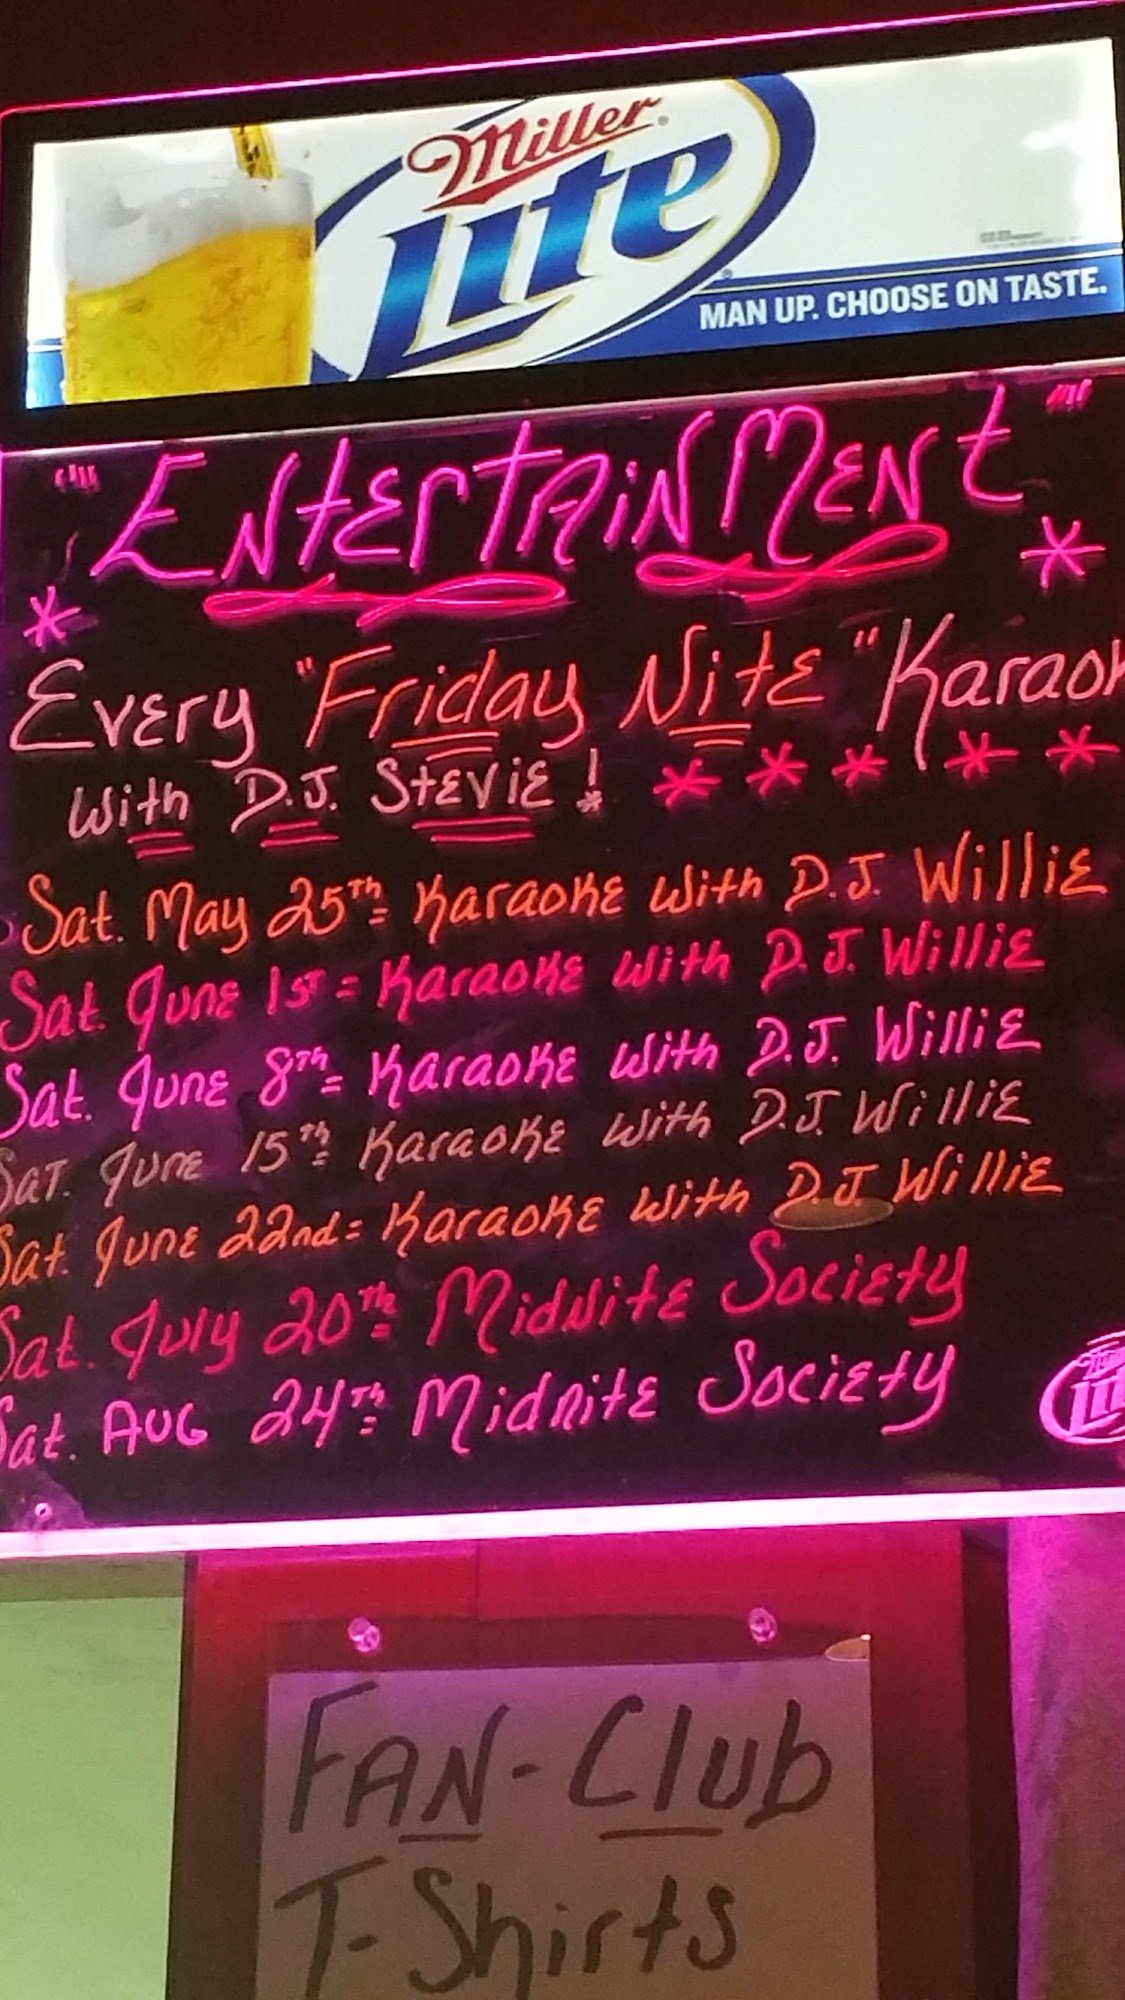 Miller
Lite
MAN UP. CHOOSE ON TASTE.
"Entertainment"
Every "Friday Nite" Karaok
with D.J. Stevie!
Sat. May 25th Karaoke with D.J. Willie
Sat. June 1st = Karaoke with D.J. Willie
Sat. June 8th = Karaoke with D.J. Willie
Sat. June 15th Karaoke with D.J. Willie
Sat. June 22nd = Karaoke with D.J. Willie
Sat. July 20th Midnite Society
Sat. AUG 24th Midnite Society
FAN-Club
T-Shirts